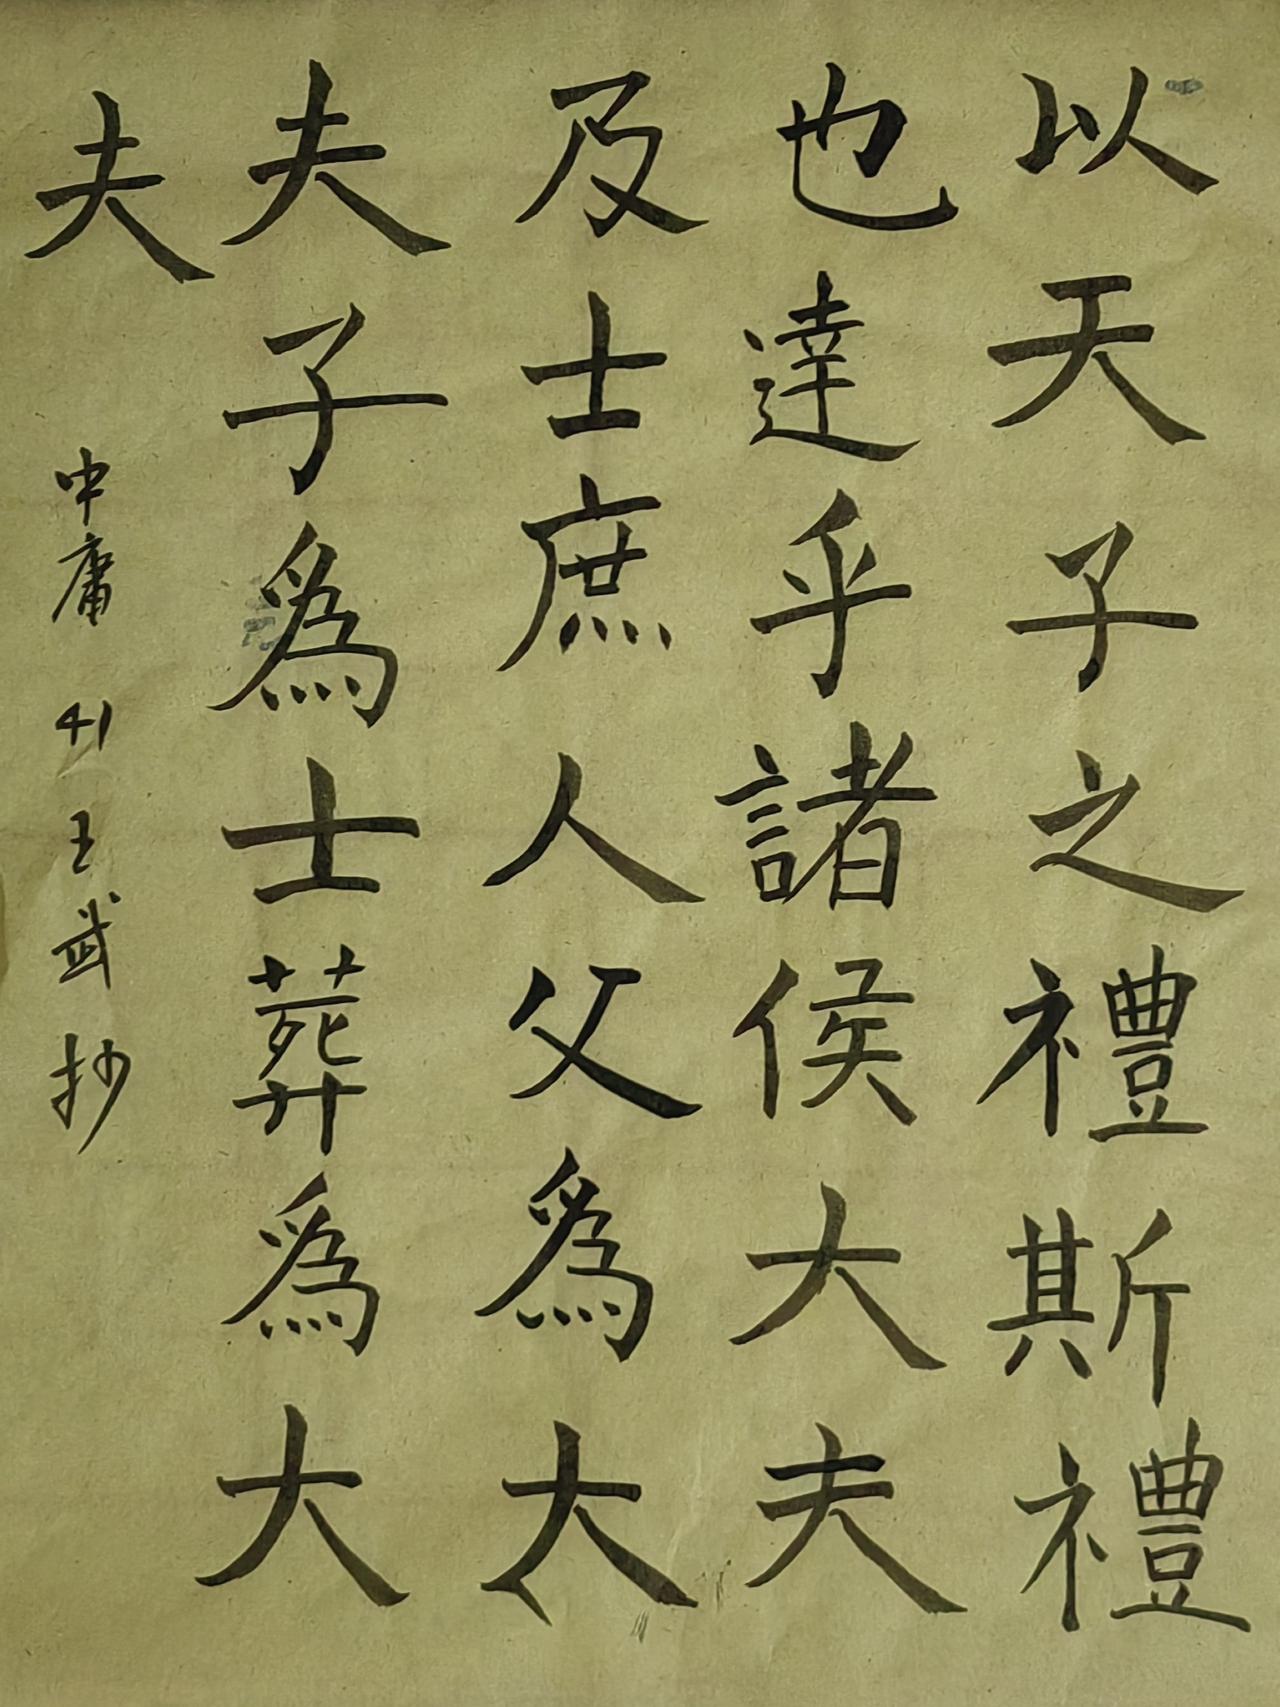 以天子之禮斯禮
也達乎諸侯大夫
及士庶人父為大
夫子為士葬為大
夫
中庸 41 王武抄